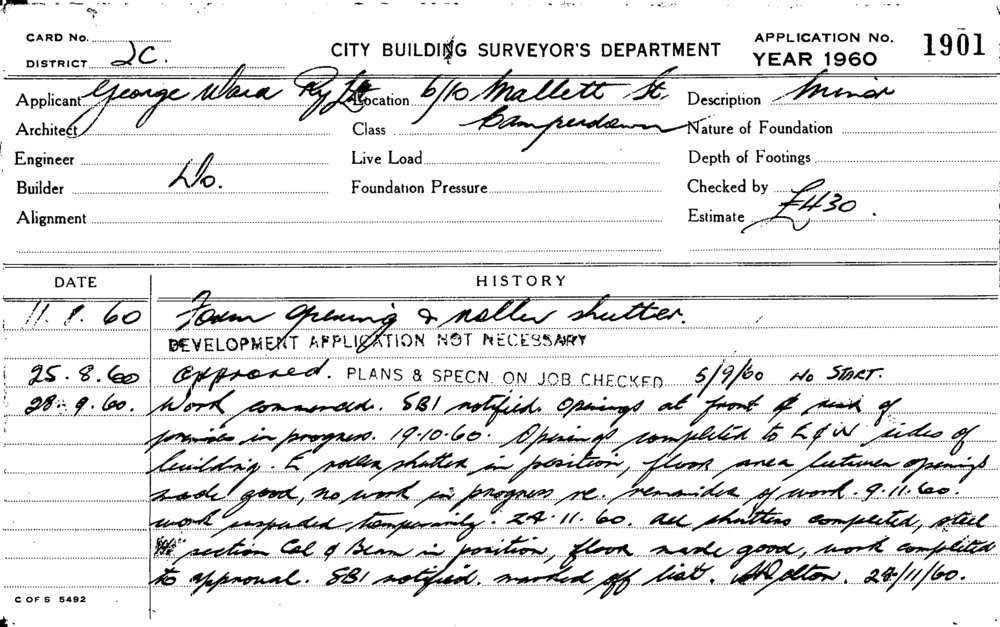 CARD No.
DISTRICT 2C.
CITY BUILDING SURVEYOR'S DEPARTMENT
APPLICATION No. 1901
YEAR 1960
Applicant George Ward Pty Ltd Location 6/10 Mallett St. Description Minor
Architect Class Camperdown Nature of Foundation
Engineer Live Load Depth of Footings
Builder Do. Foundation Pressure Checked by
Alignment Estimate £430.
DATE HISTORY
11. 8. 60 Form opening & roller shutter.
DEVELOPMENT APPLICATION NOT NECESSARY
25. 8. 60 Approved. PLANS & SPECN. ON JOB CHECKED 5/9/60 No START.
28. 9. 60. Work commenced. SBI notified. Openings at front & rear of
premises in progress. 19.10.60. Openings completed to E & W sides of
building. E roller shutter in position, floor area between openings
made good, no work in progress re. remainder of work. 9.11.60.
work suspended temporarily. 24.11.60. all shutters completed, steel
section Col & Beam in position, floor made good, work completed
to approval. SBI notified. marked off list. 24/11/60.
C OF S 5492